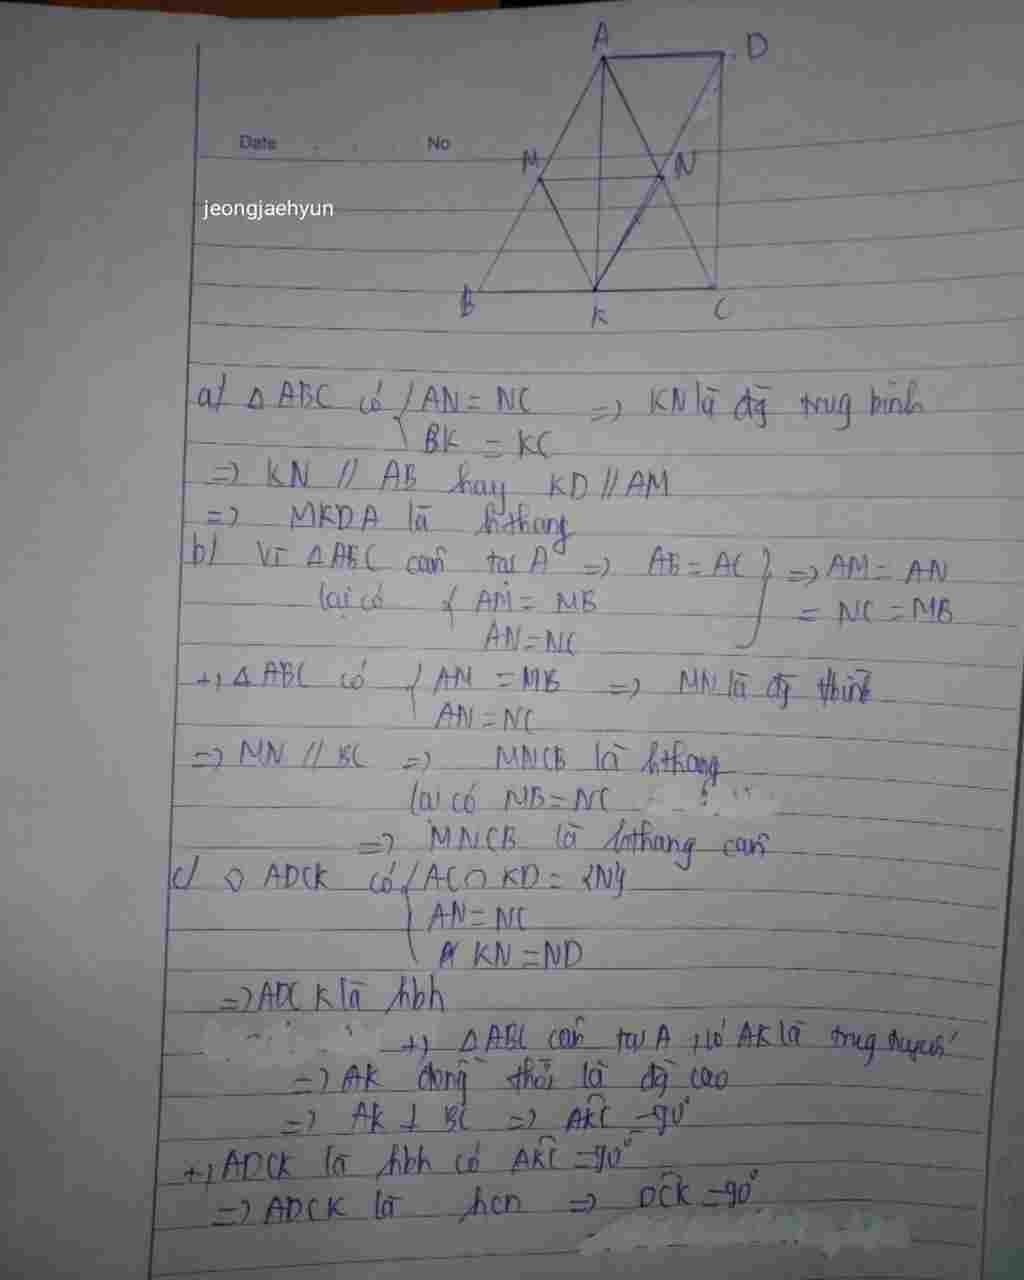 A D
Date No
M N
jeongjaehyun
B K C
a) △ABC có { AN = NC => KN là đg trug bình
BK = KC
=> KN // AB hay KD // AM
=> MKDA là hthang
b) Vì △ABC cân tại A => AB = AC } => AM = AN
lại có { AM = MB = NC = MB
AN = NC
+, △ABC có { AM = MB => MN là đg tbình
AN = NC
=> MN // BC => MNCB là hthang
lại có MB = NC
=> MNCB là hthang cân
c) ◊ ADCK có { AC ∩ KD = {N}
AN = NC
KN = ND
=> ADCK là hbh
+, △ABC cân tại A, có AK là trug tuyến
=> AK đồng thời là đg cao
=> AK ⊥ BC => AK̂C = 90°
+, ADCK là hbh có AK̂C = 90°
=> ADCK là hcn => DĈK = 90°